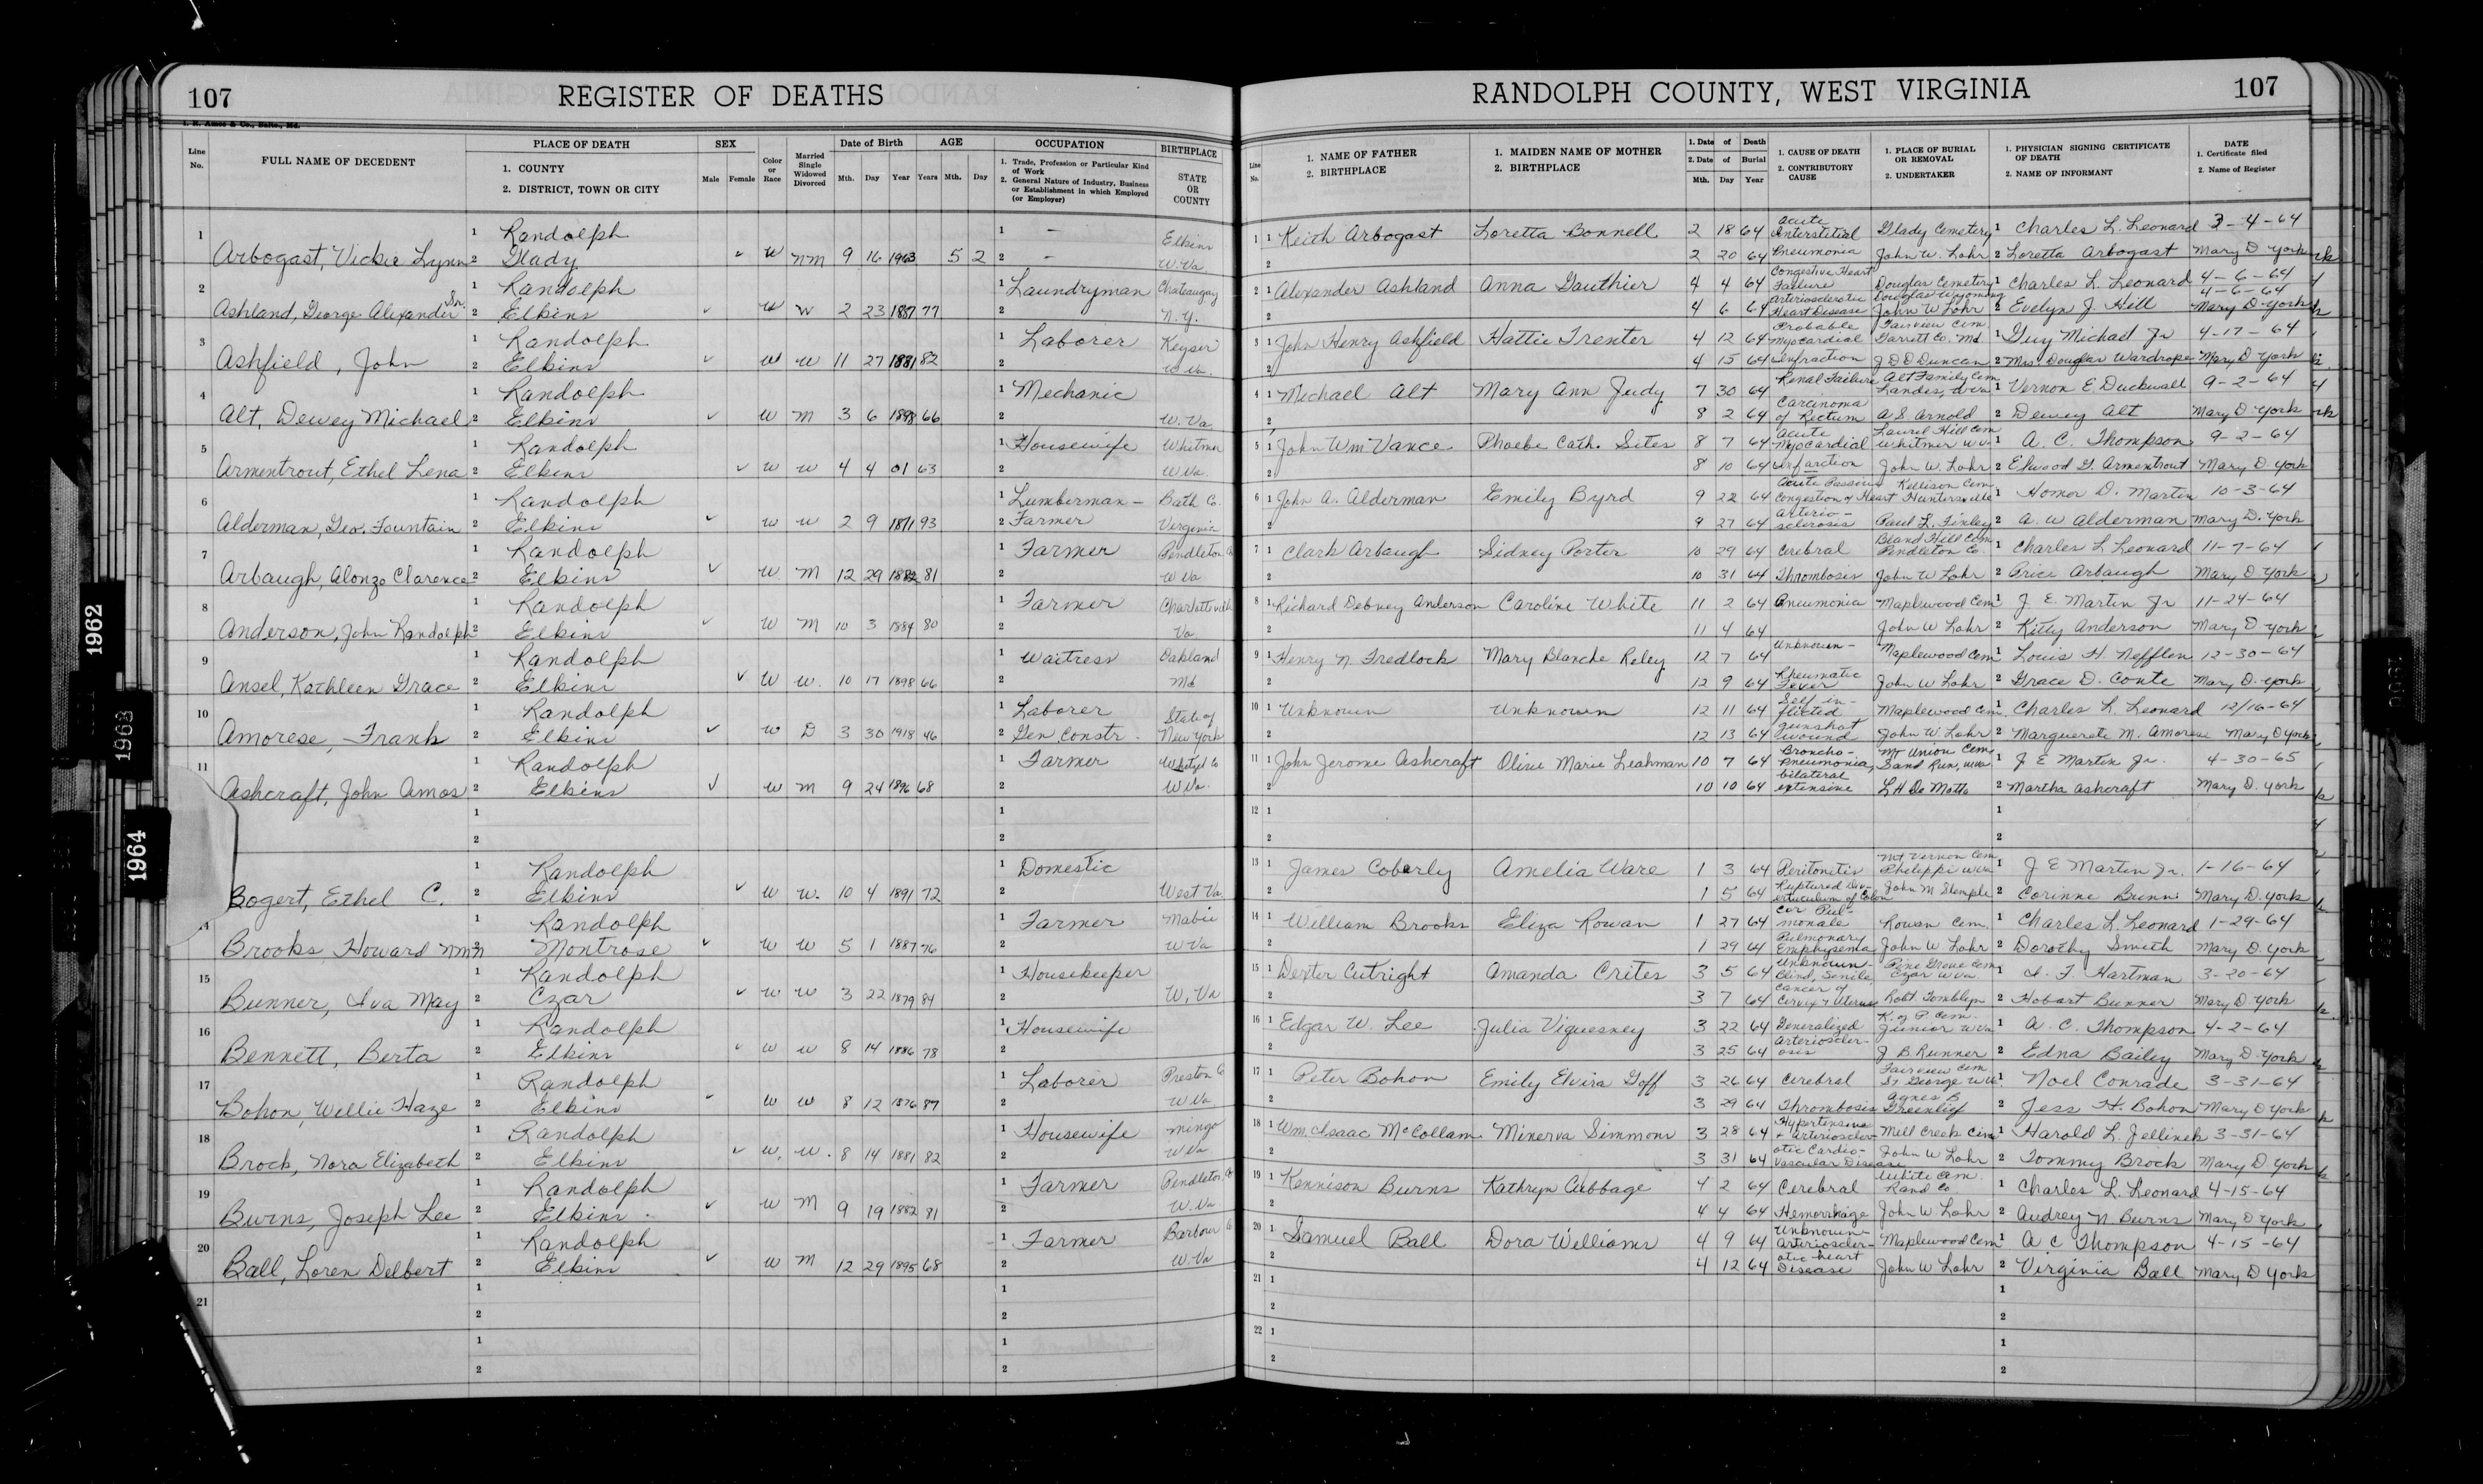 107 REGISTER OF DEATHS
RANDOLPH COUNTY, WEST VIRGINIA 107
Line No. FULL NAME OF DECEDENT PLACE OF DEATH 1. COUNTY 2. DISTRICT, TOWN OR CITY SEX Male Female Color or Race Married Single Widowed Divorced Date of Birth Mth. Day Year AGE Years Mth. Day OCCUPATION 1. Trade, Profession or Particular Kind of Work 2. General Nature of Industry, Business or Establishment in which Employed (or Employer) BIRTHPLACE STATE OR COUNTY
Line No. 1. NAME OF FATHER 2. BIRTHPLACE 1. MAIDEN NAME OF MOTHER 2. BIRTHPLACE 1. Date of Death 2. Date of Burial Mth. Day Year 1. CAUSE OF DEATH 2. CONTRIBUTORY CAUSE 1. PLACE OF BURIAL OR REMOVAL 2. UNDERTAKER 1. PHYSICIAN SIGNING CERTIFICATE OF DEATH 2. NAME OF INFORMANT DATE 1. Certificate filed 2. Name of Register
1 1 Randolph 1 - Elkins
Arbogast, Vickie Lynn 2 Glady W nm 9 16 1963 5 2 2 - W. Va.
2 1 Randolph 1 Laundryman Chateaugay
Ashland, George Alexander Sr. 2 Elkins W W 2 23 1887 77 2 N. Y.
3 1 Randolph 1 Laborer Keyser
Ashfield, John 2 Elkins W W 11 27 1881 82 2 W Va.
4 1 Randolph 1 Mechanic
Alt, Dewey Michael 2 Elkins W M 3 6 1898 66 2 W. Va
5 1 Randolph 1 Housewife Whitmer
Armentrout, Ethel Lena 2 Elkins W W 4 4 01 63 2 W Va.
6 1 Randolph 1 Lumberman - Bath Co
Alderman, Geo. Fountain 2 Elkins W W 2 9 1871 93 2 Farmer Virginia
7 1 Randolph 1 Farmer Pendleton Co
Arbaugh, Alonzo Clarence 2 Elkins W M 12 29 1882 81 2 W Va
8 1 Randolph 1 Farmer Charlottsville
Anderson, John Randolph 2 Elkins W M 10 3 1884 80 2 Va
9 1 Randolph 1 Waitress Oakland
Ansel, Kathleen Grace 2 Elkins W W. 10 17 1898 66 2 Md
10 1 Randolph 1 Laborer State of
Amorese, Frank 2 Elkins W D 3 30 1918 46 2 Gen Constr - New York
11 1 Randolph 1 Farmer Wetzel Co
Ashcraft, John Amos 2 Elkins W M 9 24 1896 68 2 W Va.
1 1
2 2
1 Randolph 1 Domestic
Bogert, Ethel C. 2 Elkins W W. 10 4 1891 72 2 West Va
1 Randolph 1 Farmer Mabie
Brooks Howard nmn 2 Montrose W W 5 1 1887 76 2 W Va
15 1 Randolph 1 Housekeeper
Bunner, Iva May 2 Czar W W 3 22 1879 84 2 W. Va
16 1 Randolph 1 Housewife
Bennett, Berta 2 Elkins W W 8 14 1886 78 2
17 1 Randolph 1 Laborer Preston Co
Bohon, Willie Haze 2 Elkins W W 8 12 1876 87 2 W Va
18 1 Randolph 1 Housewife Mingo
Brock, Nora Elizabeth 2 Elkins W. W. 8 14 1881 82 2 W Va
19 1 Randolph 1 Farmer Pendleton Co
Burns, Joseph Lee 2 Elkins W M 9 19 1882 81 2 W. Va
20 1 Randolph 1 Farmer Barbour Co
Ball, Loren Delbert 2 Elkins W M 12 29 1895 68 2 W. Va
21 1 1
2 2
1 1
2 2
1 1 Keith Arbogast Loretta Bonnell 2 18 64 Acute Interstitial Glady Cemetery 1 Charles L. Leonard 3-4-64
2 2 20 64 Pneumonia John W. Lohr 2 Loretta Arbogast Mary D York
2 1 Alexander Ashland Anna Gauthier 4 4 64 Congestive Heart Failure Douglas Cemetery 1 Charles L. Leonard 4-6-64
2 4 6 64 Arteriosclerotic Heart Disease Douglas Wyoming John W Lohr 2 Evelyn J. Hill 4-6-64 Mary D York
3 1 John Henry Ashfield Hattie Trenter 4 12 64 Probable Myocardial Fairview Cem Garrett Co. Md. 1 Guy Michael Jr 4-17-64
2 4 15 64 Infraction J D D Duncan 2 Mrs. Douglas Wardrope Mary D York
4 1 Michael Alt Mary Ann Judy 7 30 64 Renal Failure Alt Family Cem Landes, W Va 1 Vernon E. Duckwall 9-2-64
2 8 2 64 Carcinoma of Rectum A S Arnold 2 Dewey Alt Mary D York
5 1 John Wm Vance Phoebe Cath. Sites 8 7 64 Acute Myocardial Laurel Hill Cem Whitmer W Va 1 A. C. Thompson 9-2-64
2 8 10 64 Infarction John W. Lohr 2 Elwood G. Armentrout Mary D. York
6 1 John A. Alderman Emily Byrd 9 22 64 Acute Passive Congestion of Heart Kellison Cem Huntersville 1 Homer D. Martin 10-3-64
2 9 27 64 Arterio-sclerosis Paul L. Finley 2 A. W Alderman Mary D. York
7 1 Clark Arbaugh Sidney Porter 10 29 64 Cerebral Bland Hill Cem Pendleton Co 1 Charles L Leonard 11-7-64
2 10 31 64 Thrombosis John W Lohr 2 Price Arbaugh Mary D York
8 1 Richard Debney Anderson Caroline White 11 2 64 Pneumonia Maplewood Cem 1 J. E. Martin Jr 11-24-64
2 11 4 64 John W Lohr 2 Kitty Anderson Mary D York
9 1 Henry N Fredlock Mary Blanche Reley 12 7 64 Unknown - Maplewood Cem 1 Louis H. Nefflen 12-30-64
2 12 9 64 Rheumatic Fever John W Lohr 2 Grace D. Conte Mary D. York
10 1 Unknown Unknown 12 11 64 Self in-flicted Maplewood Cem. 1 Charles L. Leonard 12/16-64
2 12 13 64 gunshot wound John W. Lohr 2 Marguerete M. Amorese Mary D York
11 1 John Jerome Ashcraft Olive Marie Leahman 10 7 64 Broncho-Pneumonia, Mt Union Cem Sand Run, W Va 1 J E Martin Jr. 4-30-65
2 10 10 64 bilateral extensive L H De Motto 2 Martha Ashcraft Mary D. York
12 1 1
2 2
13 1 James Coberly Amelia Ware 1 3 64 Peritonitis Mt Vernon Cem Philippi W Va 1 J E Martin Jr. 1-16-64
2 1 5 64 Ruptured Div-erticulum of Colon John M Stemple 2 Corinne Brunn Mary D. York
14 1 William Brooks Eliza Rowan 1 27 64 Cor Pul-monale Rowan Cem. 1 Charles L Leonard 1-29-64
2 1 29 64 Pulmonary Emphysema John W Lohr 2 Dorothy Smith Mary D. York
15 1 Dexter Cutright Amanda Crites 3 5 64 Unknown - Blind, Senile, Pine Grove Cem Czar W Va 1 I. F. Hartman 3-20-64
2 3 7 64 Cancer of Cervix + Uterus Robt Tomblyn 2 Hobart Bunner Mary D York
16 1 Edgar W. Lee Julia Viquesney 3 22 64 Generalized K. of P. Cem. Junior W Va 1 A. C. Thompson 4-2-64
2 3 25 64 Arterioscler-osis J B Runner 2 Edna Bailey Mary D. York
17 1 Peter Bohon Emily Elvira Goff 3 26 64 Cerebral Fairview Cem St George W Va 1 Noel Conrade 3-31-64
2 3 29 64 Thrombosis Agnes B Greenlief 2 Jess H. Bohon Mary D York
18 1 Wm. Isaac McCollam Minerva Simmons 3 28 64 Hypertensive + Arterioscler- Mill Creek Cem 1 Harold L. Jellinek 3-31-64
2 3 31 64 otic Cardio-Vascular Disease John W Lohr 2 Tommy Brock Mary D York
19 1 Kennison Burns Kathryn Cubbage 4 2 64 Cerebral White Cem. Rand Co. 1 Charles L. Leonard 4-15-64
2 4 4 64 Hemorrhage John W. Lohr 2 Audrey N Burns Mary D York
20 1 Samuel Ball Dora Williams 4 9 64 Unknown - Arterioscler- Maplewood Cem 1 A C Thompson 4-15-64
2 4 12 64 otic heart Disease John W Lohr 2 Virginia Ball Mary D York
21 1 1
2 2
22 1 1
2 2
1962
1963
1964